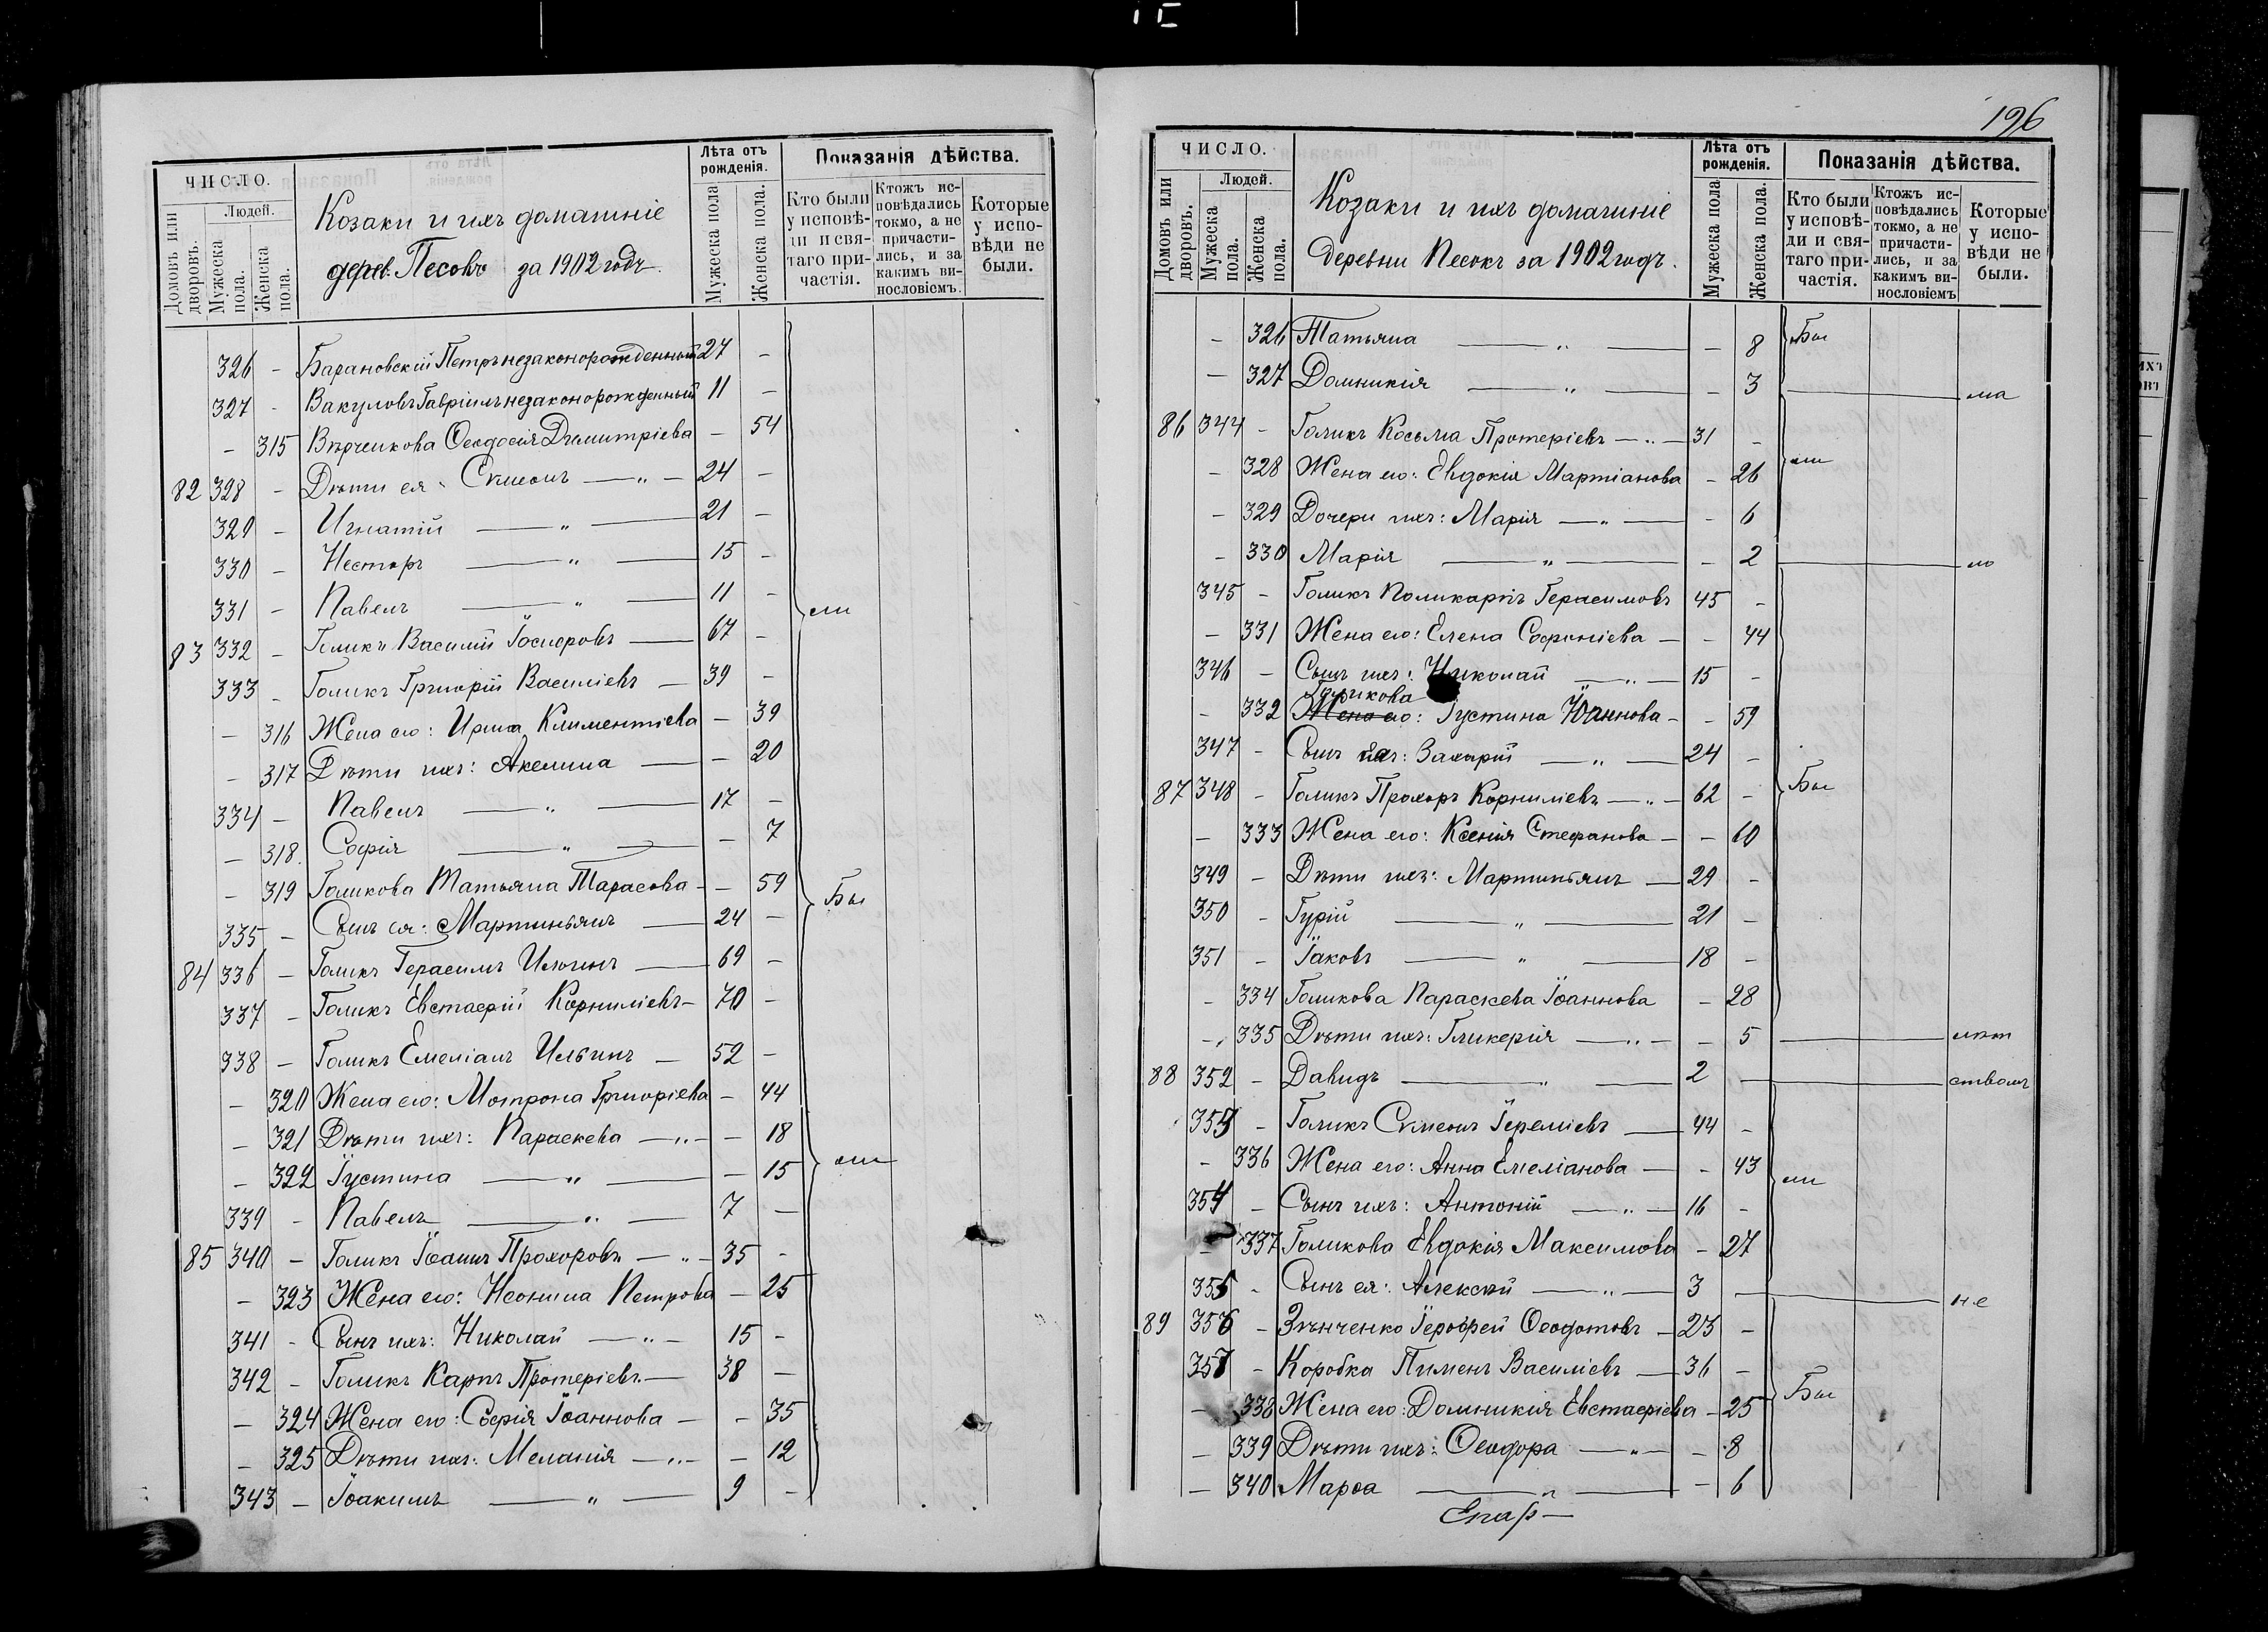 Козаки и ихъ домашніе
дерев. Песокъ за 1902 годъ.
ЧИСЛО.
Домовъ или дворовъ.
Людей.
Мужеска пола.
Женска пола.
Лѣта отъ рожденія.
Мужеска пола
Женска пола.
Показанія дѣйства.
Кто были у исповѣди и святаго причастія.
Ктожъ исповѣдались токмо, а не причастились, и за какимъ винословіемъ.
Которые у исповѣди не были.
326 - Барановскій Петръ незаконорожденный 27 -
327 - Вакуловъ Гавріилъ незаконорожденный 11 -
- 315 Вѣрченкова Ѳеодосія Димитріева - 54
82 328 - Дѣти ея: Сѵмеонъ — „ — 24 -
329 - Игнатій — „ — 21 -
330 - Несторъ — „ — 15 -
331 - Павелъ — „ — 11 -
ли
83 332 - Голикъ Василій Іосифовъ — 67 -
333 - Голикъ Григорій Василіевъ — 39 -
- 316 Жена его: Ирина Климентіева - 39
- 317 Дѣти ихъ: Акелина — - 20
334 - Павелъ — „ — 17 -
- 318. Софія — „ — - 7
- 319 Голикова Татьяна Тарасова - - 59
Бы
335 - Сынъ ея: Мартиньянъ — 24 -
84 336 - Голикъ Герасимъ Ильинъ — 69 -
337 - Голикъ Евстафій Корниліевъ - 70 -
338 - Голикъ Емеліанъ Ильинъ — 52 -
- 320 Жена его: Мотрона Григоріева - 44
- 321 Дѣти ихъ: Параскева — „ - - 18
- 322 Іустина — „ — - 15
ли
339 - Павелъ — „ — 7 -
85 340 - Голикъ Іоаннъ Прохоровъ — „ - 35 -
- 323 Жена его: Неонила Петрова - 25
341 - Сынъ ихъ: Николай — „ — 15 -
342 - Голикъ Карпъ Протеріевъ — 38 -
- 324 Жена его: Софія Іоаннова — - 35
- 325 Дѣти ихъ: Меланія — „ - - 12
343 - Іоакимъ — „ — 9 -
196
Козаки и ихъ домашніе
деревни Песокъ за 1902 годъ.
ЧИСЛО.
Домовъ или дворовъ.
Людей.
Мужеска пола.
Женска пола.
Лѣта отъ рожденія.
Мужеска пола
Женска пола.
Показанія дѣйства.
Кто были у исповѣди и святаго причастія.
Ктожъ исповѣдались токмо, а не причастились, и за какимъ винословіемъ
Которые у исповѣди не были.
- 326 Татьяна — „ — - 8 Бы
- 327 Домникія — „ — - 3 — ма
86 344 - Голикъ Косьма Протеріевъ — „ — 31 -
ли
- 328 Жена его: Евдокія Мартіанова - 26
- 329 Дочери ихъ: Марія — „ — - 6
- 330 Марія — „ — - 2 — ло
345 - Голикъ Поликарпъ Герасимовъ 45 -
- 331 Жена его: Елена Софоніева — - 44
346 - Сынъ ихъ: Николай — „ — 15 -
Голикова
- 332 Жена его: Іустина Іоаннова - - 59
347 - Сынъ ея: Захарій — „ — 24 -
87 348 - Голикъ Прохоръ Корниліевъ — „ — 62 - Бы
- 333 Жена его: Ксенія Стефанова — - 60
349 - Дѣти ихъ: Мартиньянъ — 29 -
350 - Гурій — „ — 21 -
351 - Іаковъ — „ — 18 -
- 334 Голикова Параскева Іоаннова - 28
- 335 Дѣти ихъ: Гликерія — „ — - 5 — лѣт
88 352 - Давидъ — „ — 2 — ствомъ
353 - Голикъ Сѵмеонъ Іереміевъ — 44 -
- 336 Жена его: Анна Емеліанова — - 43
ли
354 - Сынъ ихъ: Антоній — „ — 16 -
- 337 Голикова Евдокія Максимова - 27
355 - Сынъ ея: Алексѣй — „ — 3 — не
89 356 - Зѣнченко Іерофей Ѳеодотовъ — 23 -
357 - Коробка Пименъ Василіевъ — 36 -
Бы
- 338 Жена его: Домникія Евстафіева - 25
- 339 Дѣти ихъ: Ѳеодора — „ — - 8
- 340 Марѳа — „ — - 6